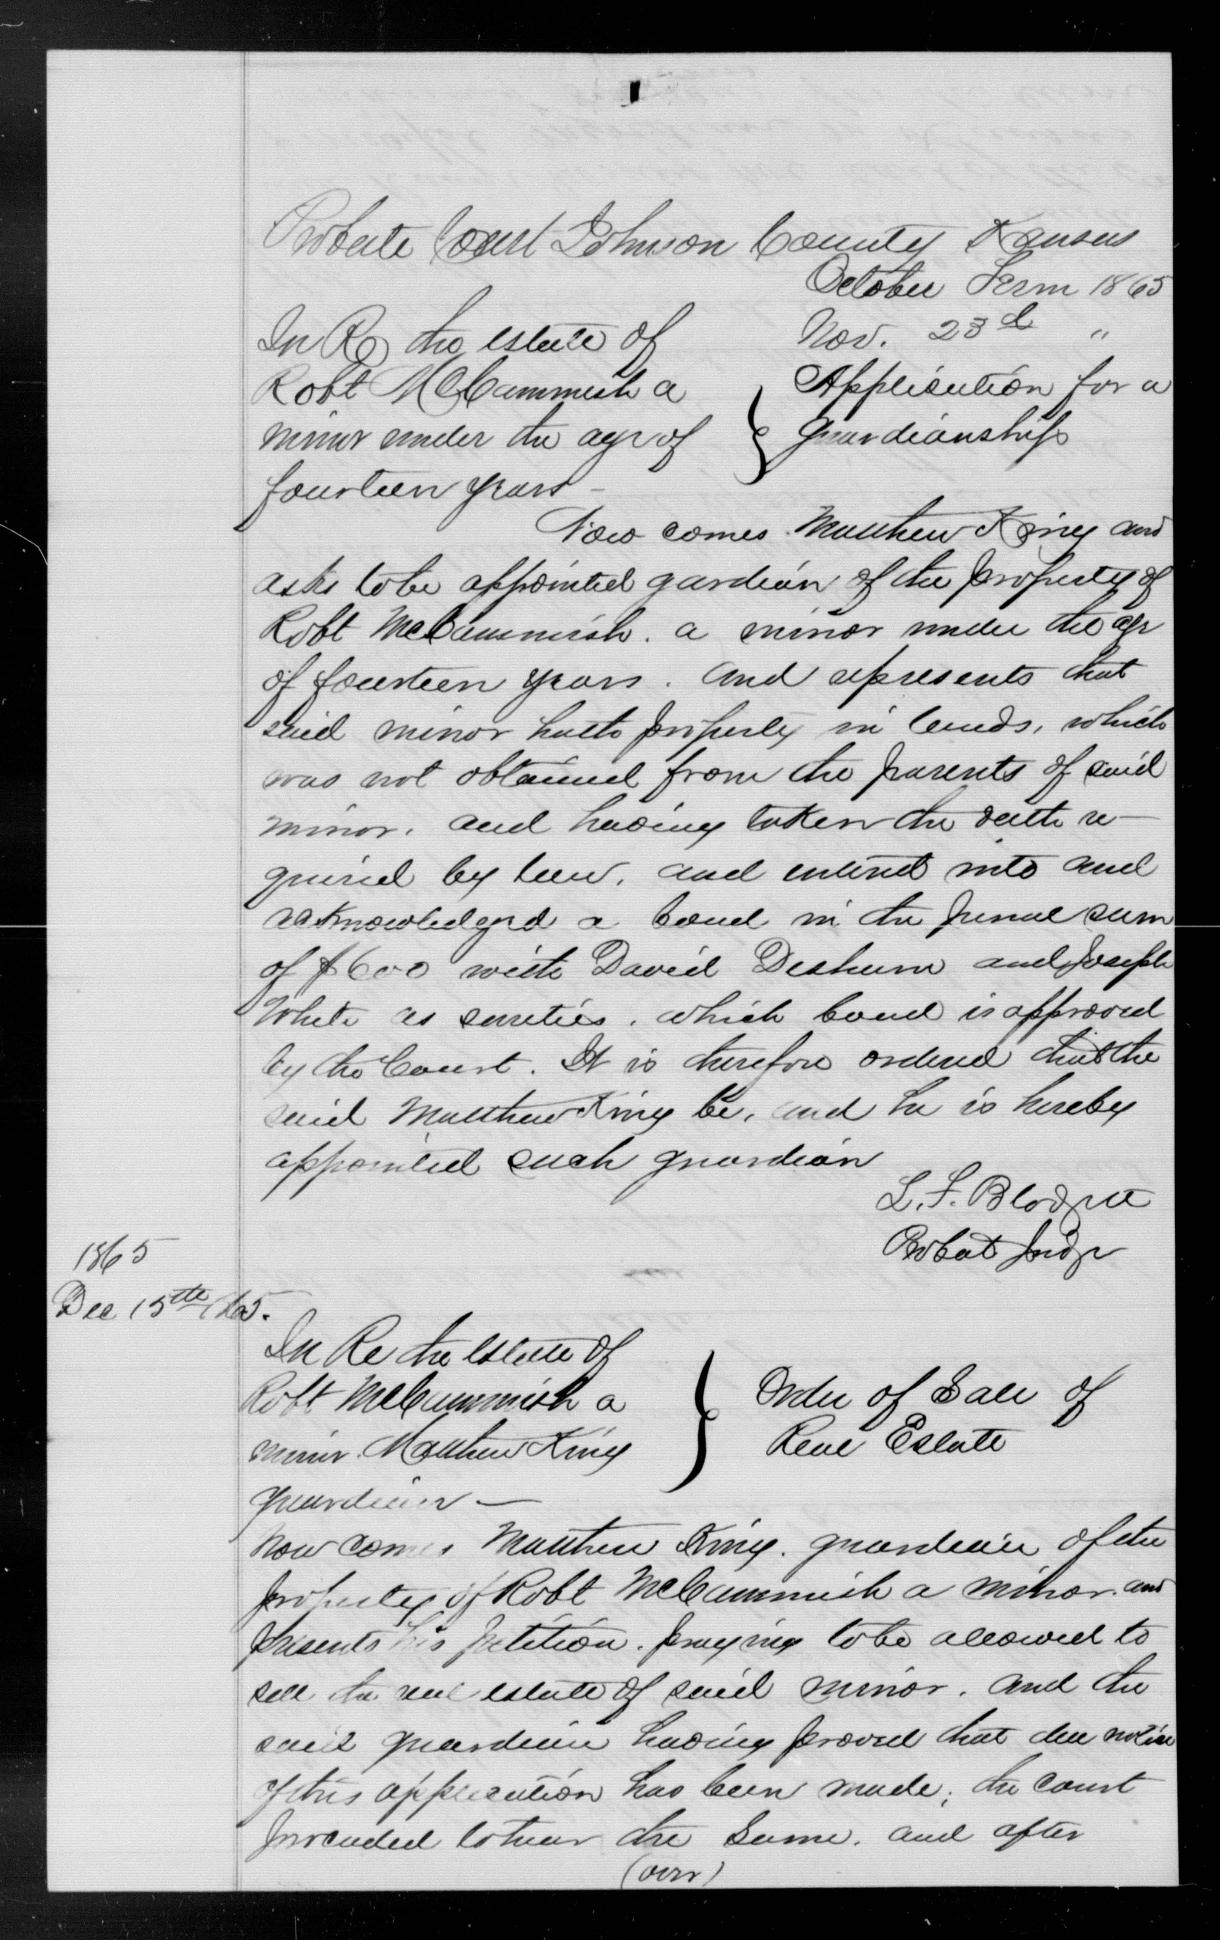 Probate Court Johnson County Kansas
October Term 1865
In Re the estate of Nov. 23d "
Robt McCammish a } Application for a
minor under the age of guardianship
fourteen years —
Now comes Matthew King and
asks to be appointed gardian of the property of
Robt McCammish. a minor under the age
of fourteen years. and represents that
said minor hath property in lands, which
was not obtained from the parents of said
minor. and having taken the oath re-
quired by law. and entered into and
acknowledged a bond in the penal sum
of $600 with David Deshum and Joseph
White as sureties. which bond is approved
by the Court. It is therefore ordered that the
said Matthew King be, and he is hereby
appointed such guardian
L. F. Blodgett
Probat Judge
1865
Dec 15th 1865.
In Re the estate of
Robt McCammish a } Order of Sale of
minor. Matthew King Real Estate
guardian —
Now comes Matthew King. guardian of the
property of Robt McCammish a minor. and
presents his petition. praying to be allowed to
sell the real estate of said minor. and the
said guardian having proved that due notice
of this application has been made; the court
proceeded to hear the same. and after
(over)